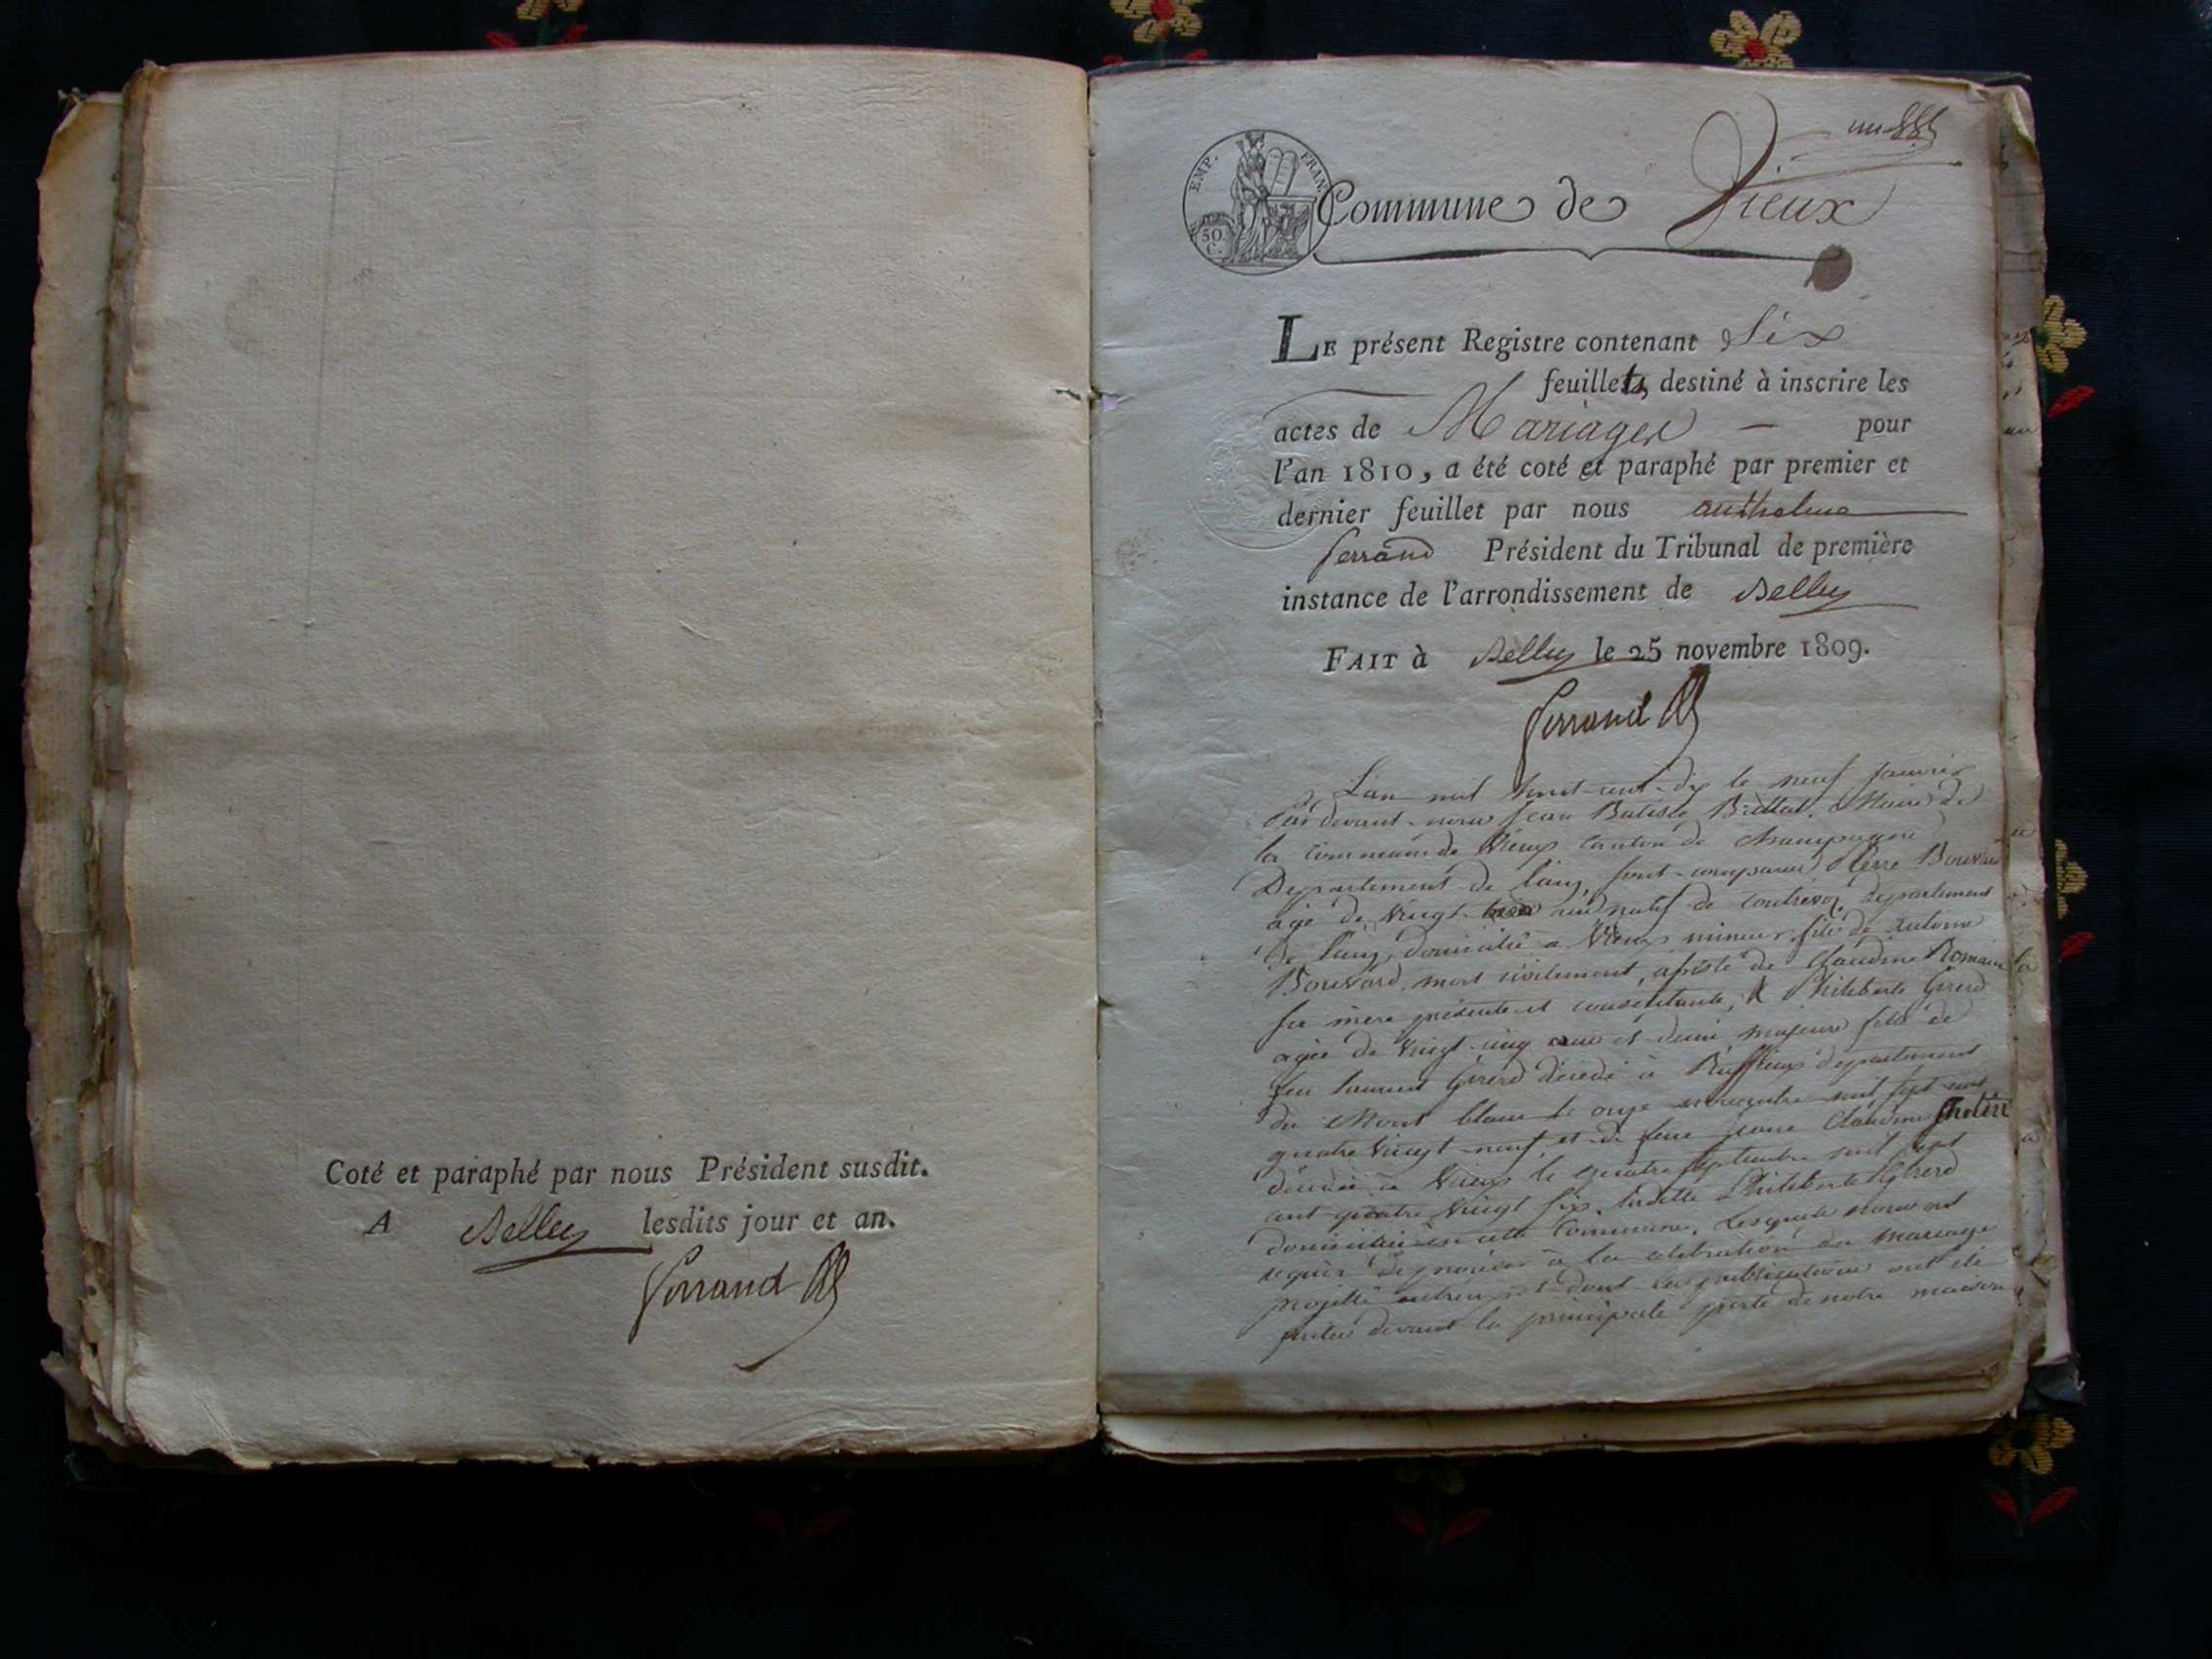 Coté et paraphé par nous Président susdit.
A Belley lesdits jour et an.
Ferrand
un
EMP. FRAN.
50 C.
Commune de Vieux
LE présent Registre contenant Six
feuillets, destiné à inscrire les
actes de Mariages — pour
l'an 1810, a été coté et paraphé par premier et
dernier feuillet par nous anthelme
ferrand Président du Tribunal de première
instance de l'arrondissement de Belley
FAIT à Belley le 25 novembre 1809.
Ferrand
L'an mil huit cent dix le neuf janvier
Par devant nous Jean Batiste Brillat, Maire de
la Commune de Vieux Canton de Champagne
Departement de l'ain, sont comparus Pierre Bouvard
agé de Vingt ans natif de Contrevoz departement
de l'ain, domicilié a Vieux mineur, fils de Antoine
Bouvard, mort civilement, assisté de Claudine Romain
sa mère présente et consentante, & Philiberte Girerd
agée de Vingt cinq ans et demi majeure fille de
feu Laurent Girerd décedé à Ruffieux departement
du Mont blanc le onze mil sept cent
quatre Vingt neuf, et de feue Claudine
décedée a Vieux le quatre septembre mil sept
cent quatre Vingt six, ladite Philiberte Girerd
domiciliée en cette Commune. Lesquels nous ont
requis de procéder à la célébration du mariage
projetté entreux et dont les publications ont été
faites devant la principale porte de notre maison